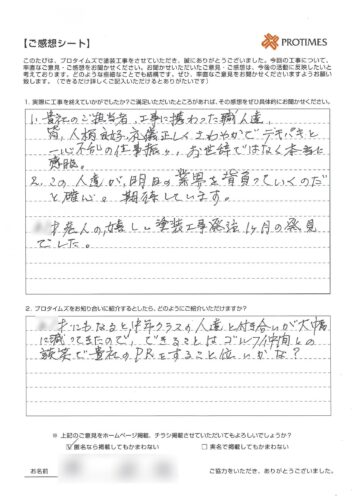 【ご感想シート】
PROTIMES
このたびは、プロタイムズで塗装工事をさせていただき、誠にありがとうございました。今回の工事について、
率直なご意見・ご感想をお聞かせください。お聞かせいただいたご意見・ご感想は、今後の活動に反映したいと
考えております。どのような些細なことでも結構です。ぜひ、率直なご意見をお聞かせくださいますようお願い
致します。(できるだけ詳しくご記入いただけるとありがたいです)
1. 実際に工事を終えていかがでしたか?ご満足いただいたところがあれば、その感想をぜひ具体的にお聞かせください。
1. 貴社のご担当者、工事に携わった職人達、
皆、人柄良好、礼儀正しくさわやかでテキパキと
一心不乱の仕事振り、お世辞ではなく本当に
感服。
2. この人達が、明日の業界を背負っていくのだ
と確心。期待しています。
才老人の嬉しい塗装工事発注1ヶ月の発見
でした。
2. プロタイムズをお知り合いに紹介するとしたら、どのようにご紹介いただけますか?
才にもなると、中年クラスの人達と付き合いが大幅
に減ってきたので、できることはゴルフ仲間との
談笑で貴社のPRをすること位いかな?
※ 上記のご意見をホームページ掲載、チラシ掲載させていただいてもよろしいでしょうか?
匿名なら掲載してもかまわない
実名で掲載してもかまわない
お名前
ご協力をいただき、ありがとうございました。